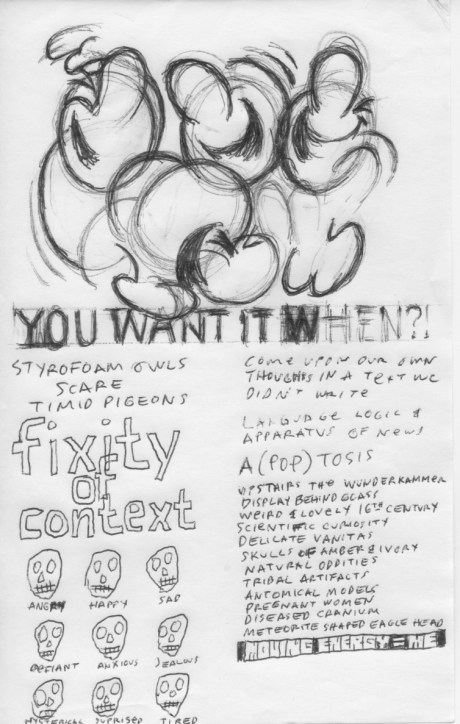 YOU WANT IT WHEN?!
STYROFOAM OWLS
SCARE
TIMID PIGEONS
fixity
of
context
ANGRY HAPPY SAD
DEFIANT ANXIOUS JEALOUS
HYSTERICAL SUPRISED TIRED
COME UPON OUR OWN
THOUGHTS IN A TEXT WE
DIDN'T WRITE
LANGUAGE LOGIC &
APPARATUS OF NEWS
A(POP)TOSIS
UPSTAIRS THE WUNDERKAMMER
DISPLAY BEHIND GLASS
WEIRD & LOVELY 16TH CENTURY
SCIENTIFIC CURIOSITY
DELICATE VANITAS
SKULLS OF AMBER & IVORY
NATURAL ODDITIES
TRIBAL ARTIFACTS
ANTOMICAL MODELS
PREGNANT WOMEN
DISEASED CRANIUM
METEORITE SHAPED EAGLE HEAD
MOVING ENERGY = ME